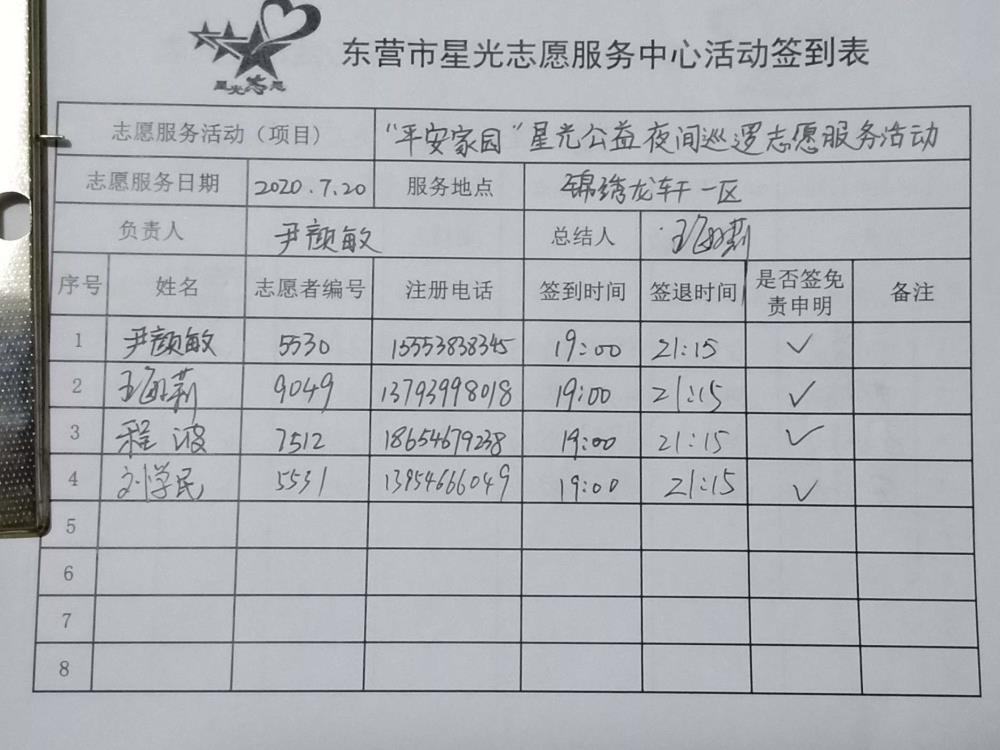 星光志愿
东营市星光志愿服务中心活动签到表
志愿服务活动（项目） “平安家园”星光公益夜间巡逻志愿服务活动
志愿服务日期 2020.7.20 服务地点 锦绣龙轩一区
负责人 尹颜敏 总结人
序号 姓名 志愿者编号 注册电话 签到时间 签退时间 是否签免责申明 备注
1 尹颜敏 5530 15553838345 19:00 21:15 ✓
2 9049 13793998018 19:00 21:15 ✓
3 程波 7512 18654679238 19:00 21:15 ✓
4 刘学民 5531 13954666049 19:00 21:15 ✓
5
6
7
8